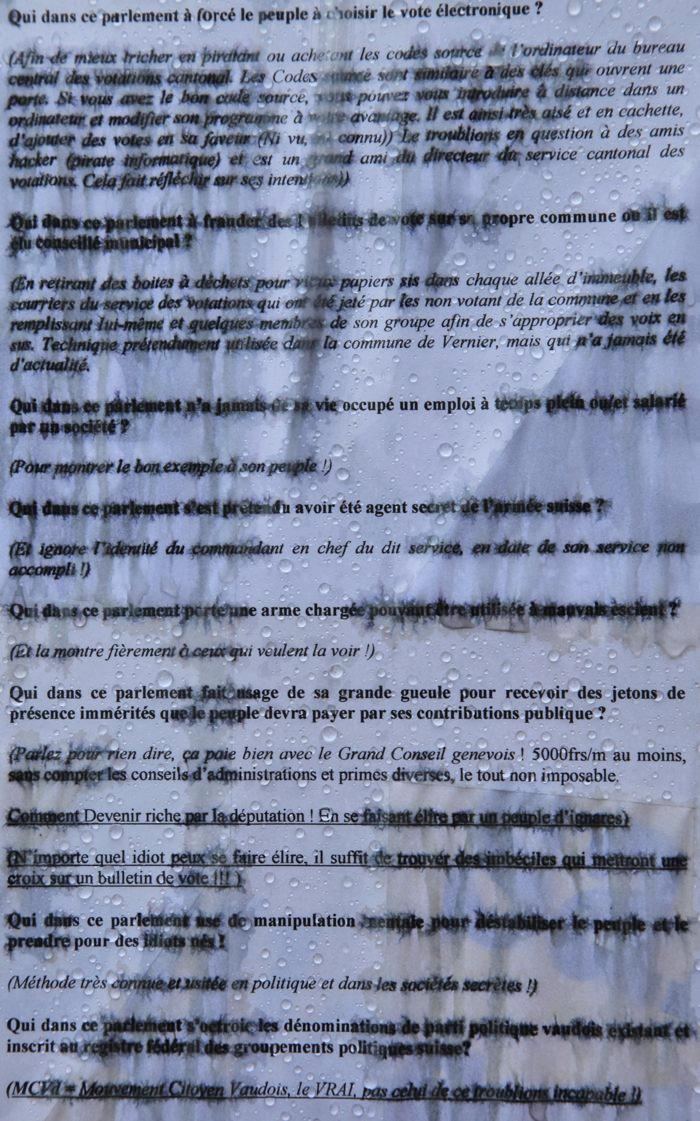 Qui dans ce parlement à forcé le peuple à choisir le vote électronique ?
(Afin de mieux tricher en piratant ou achetant les codes source de l'ordinateur du bureau
central des votations cantonal. Les Codes source sont similaire à des clés qui ouvrent une
porte. Si vous avez le bon code source, vous pouvez vous introduire à distance dans un
ordinateur et modifier son programme à votre avantage. Il est ainsi très aisé et en cachette,
d'ajouter des votes en sa faveur (Ni vu, ni connu)) Le troublions en question à des amis
hacker (pirate informatique) et est un grand ami du directeur du service cantonal des
votations. Cela fait réfléchir sur ses intentions))
Qui dans ce parlement à frauder des bulletins de vote sur sa propre commune ou il est
élu conseillé municipal ?
(En retirant des boites à déchets pour vieux papiers sis dans chaque allée d'immeuble, les
courriers du service des votations qui ont été jeté par les non votant de la commune et en les
remplissant lui-même et quelques membres de son groupe afin de s'approprier des voix en
sus. Technique prétendument utilisée dans la commune de Vernier, mais qui n'a jamais été
d'actualité.
Qui dans ce parlement n'a jamais de sa vie occupé un emploi à temps plein ou/et salarié
par un société ?
(Pour montrer le bon exemple à son peuple !)
Qui dans ce parlement s'est prétendu avoir été agent secret de l'armée suisse ?
(Et ignore l'identité du commandant en chef du dit service, en date de son service non
accompli !)
Qui dans ce parlement porte une arme chargée pouvant être utilisée à mauvais escient ?
(Et la montre fièrement à ceux qui veulent la voir !)
Qui dans ce parlement fait usage de sa grande gueule pour recevoir des jetons de
présence immérités que le peuple devra payer par ses contributions publique ?
(Parlez pour rien dire, ça paie bien avec le Grand Conseil genevois ! 5000frs/m au moins,
sans compter les conseils d'administrations et primes diverses, le tout non imposable.
Comment Devenir riche par la députation ! En se faisant élire par un peuple d'ignares)
(N'importe quel idiot peux se faire élire, il suffit de trouver des imbéciles qui mettront une
croix sur un bulletin de vote !!! )
Qui dans ce parlement use de manipulation mentale pour déstabiliser le peuple et le
prendre pour des idiots nés !
(Méthode très connue et usitée en politique et dans les sociétés secrètes !)
Qui dans ce parlement s'octroie les dénominations de parti politique vaudois existant et
inscrit au registre fédéral des groupements politiques suisse?
(MCVd = Mouvement Citoyen Vaudois, le VRAI, pas celui de ce troublions incapable !)